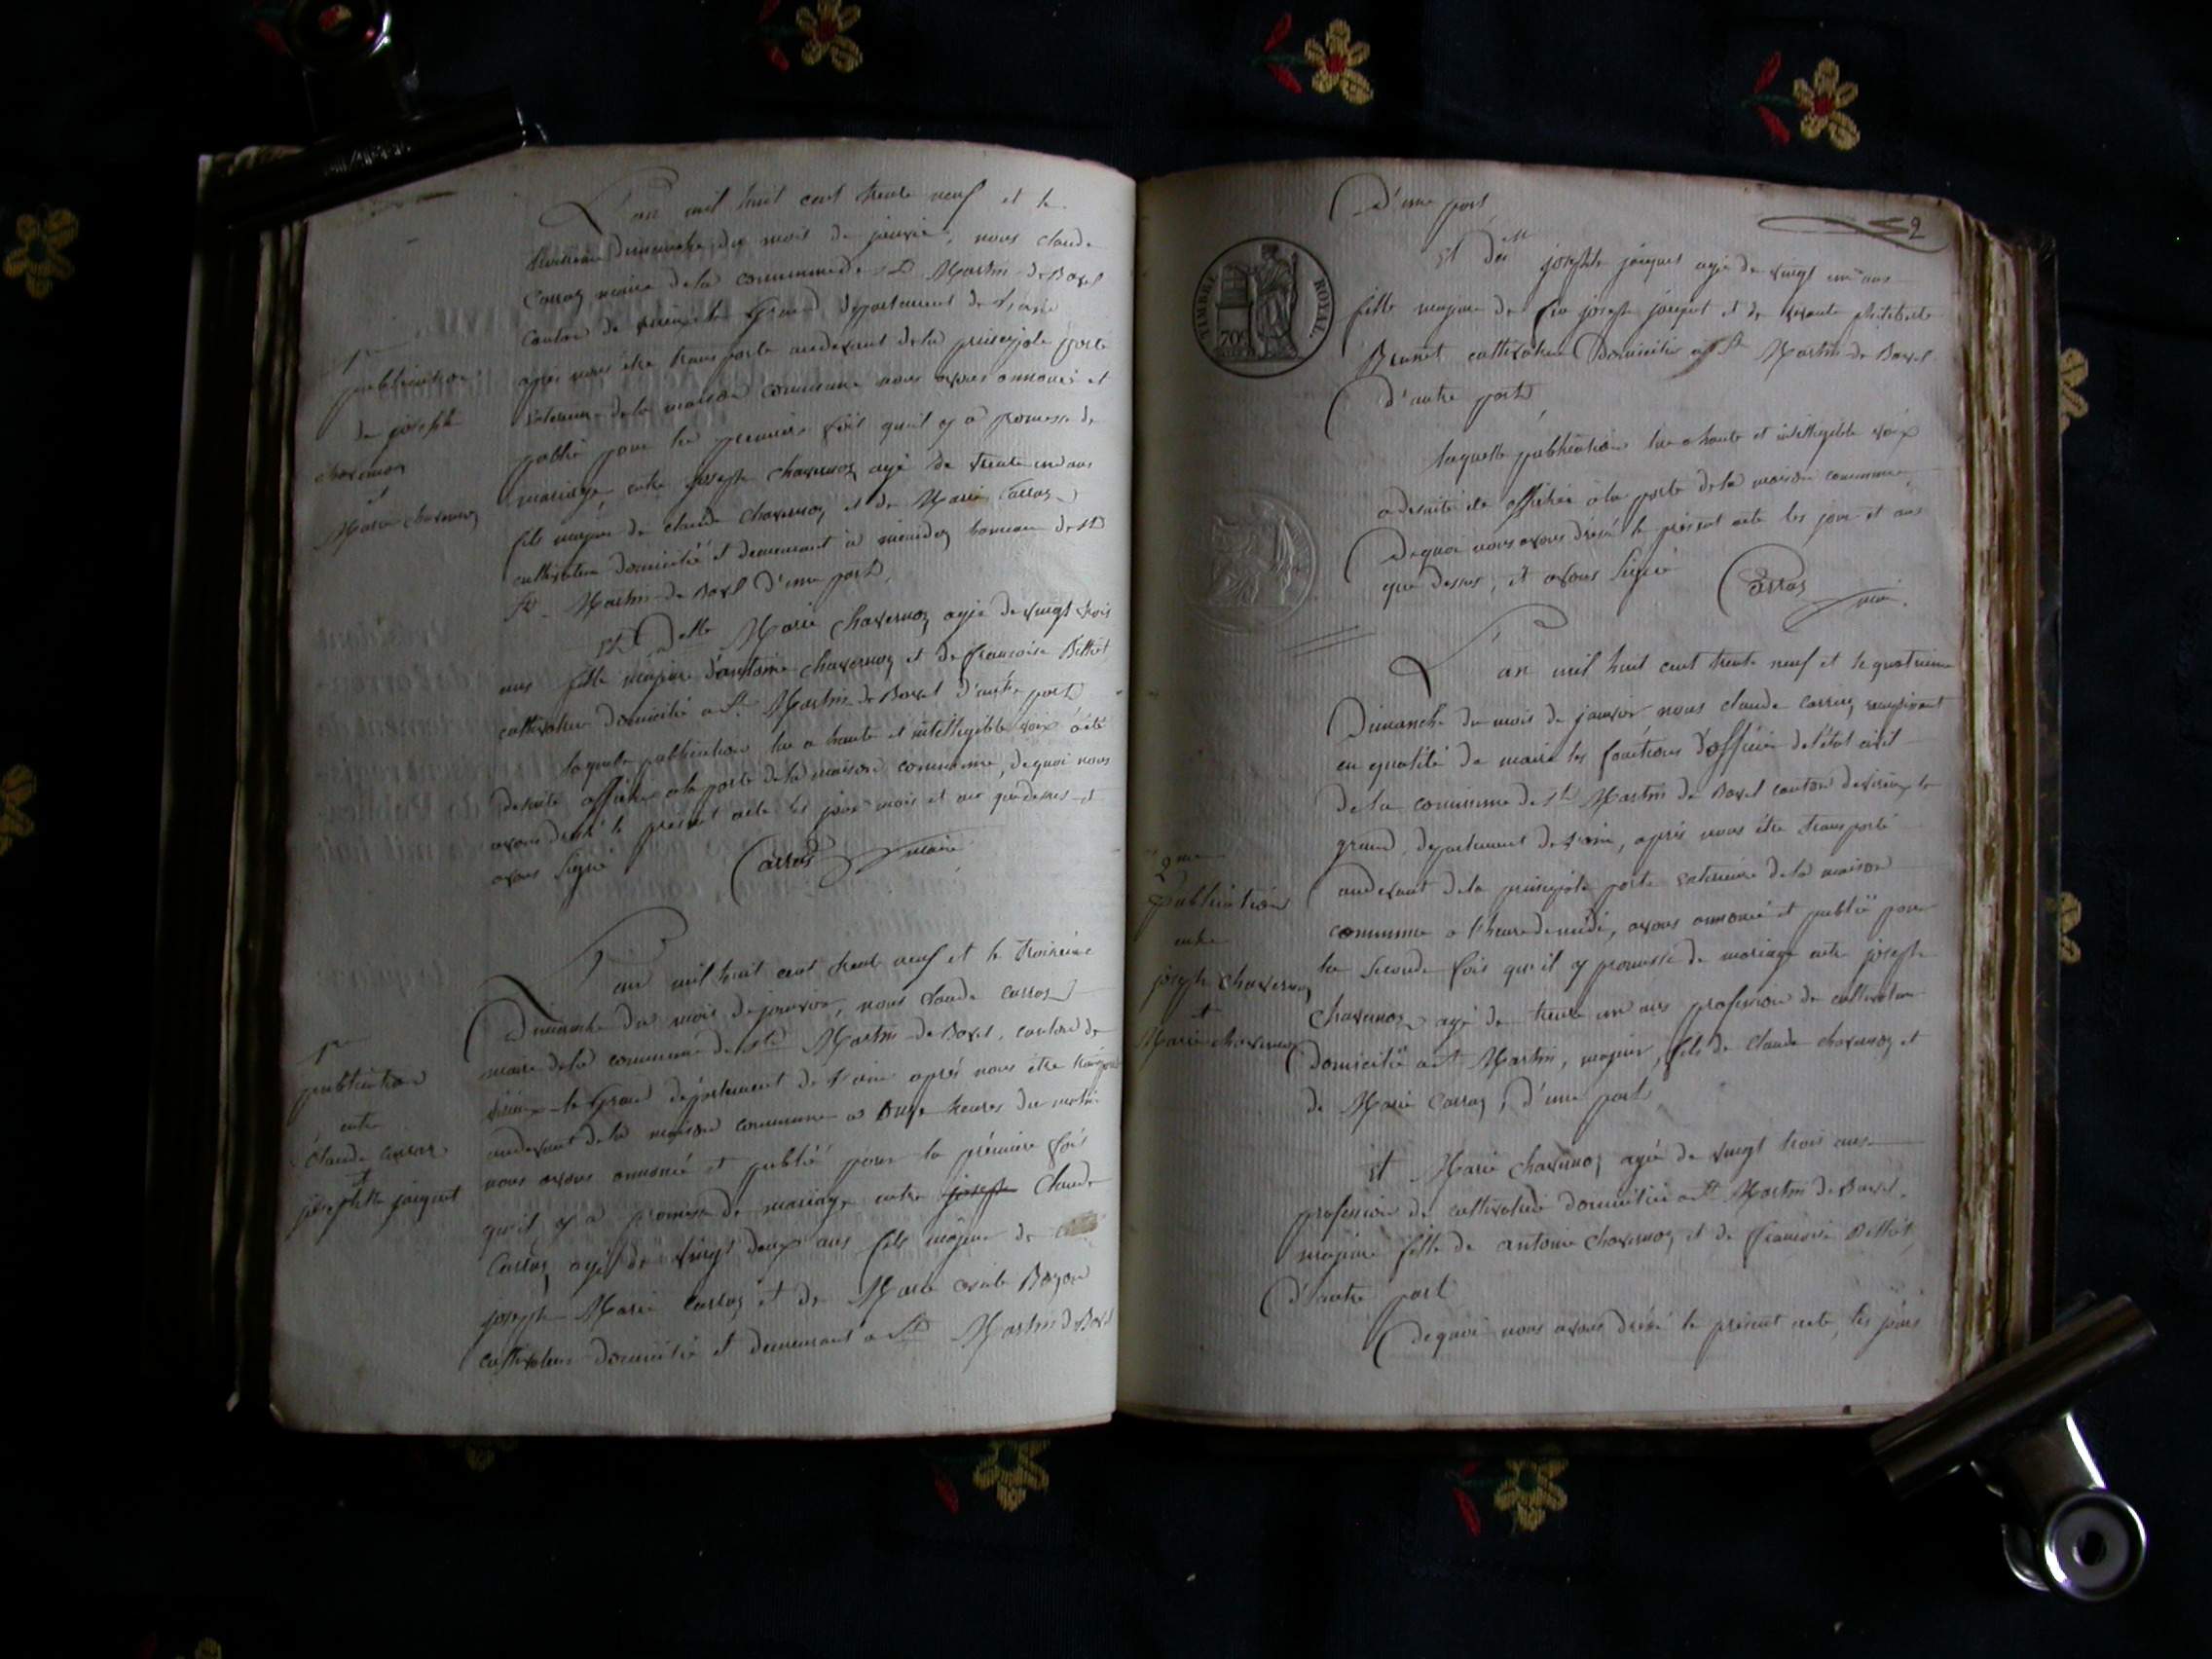 L'an mil huit cent trente neuf et le
dimanche du mois de janvier, nous claude
Carraz maire de la commune de St Martin de Bavel
Canton de virieu le Grand département de l'ain
après nous être transporté audevant de la principale porte
exterieure de la maison commune nous avons annoncé et
publié pour la premiere fois qu'il y a promesse de
mariage, entre joseph chavernoz agé de trente un ans
fils majeur de claude chavernoz et de Marie Carraz
cultivateur domicilié et demeurant à hameau de St
Martin de Bavel d'une part,
Et Delle Marie chavernoz agée de vingt trois
ans fille majeure d'antoine chavernoz et de francoise Billiet
cultivateur domicilié a St Martin de Bavel d'autre part
laquelle publication lue a haute et intelligible voix a été
desuite affichée a la porte de la maison commune, de quoi nous
avons dressé le present acte les jour mois et an que dessus et
avons signé Carraz maire
1re
publication
de joseph
chavernoz
et
Marie chavernoz
L'an mil huit cent trente neuf et le troisième
Dimanche du mois de janvier, nous claude carraz
maire de la commune de St Martin de Bavel, canton de
virieu le Grand département de l'ain après nous être transporté
audevant de la maison commune a onze heures du matin
nous avons annoncé et publié pour la première fois
qu'il y a promesse de mariage entre joseph claude
Carraz agé de vingt deux ans fils majeur de
joseph Marie Carraz et de Marie Boyon
cultivateur domicilié et demeurant a St Martin de Bavel
1re
publication
entre
claude carraz
et
josephte jacquet
2
D'une part
TIMBRE ROYAL
70c
et Delle josephte jacquet agée de vingt un ans
fille majeure de feu joseph jacquet et de vivante philiberte
Brunet cultivateur Domicilié a St Martin de Bavel
d'autre part
laquelle publication lue a haute et intelligible voix
a desuite été affichée a la porte de la maison commune,
De quoi nous avons dressé le présent acte les jour et an
que dessus, et avons signé Carraz
maire
L'an mil huit cent trente neuf et le quatrieme
Dimanche du mois de janvier nous claude carraz remplissant
en qualité de maire les fonctions d'officier de l'état civil
de la commune de St Martin de Bavel canton de virieu le
grand, département de l'ain, après nous être transporté
audevant de la principale porte exterieure de la maison
commune a l'heure de midi, avons annoncé et publié pour
la seconde fois qu'il y promesse de mariage entre joseph
chavernoz agé de trente un ans profession de cultivateur
domicilié a St Martin, majeur, fils de claude chavernoz et
de Marie Carraz, d'une part
et Marie chavernoz agée de vingt trois ans
profession de cultivateur domiciliée a St Martin de Bavel,
majeure fille de antoine chavernoz et de francoise Billiet,
d'autre part
de quoi nous avons dréssé le présent acte, les jours
2me
Publication
entre
joseph chavernoz
et
Marie chavernoz